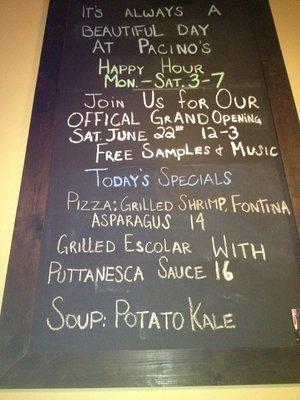 It's always a
beautiful day
at Pacino's
Happy Hour
Mon.-Sat. 3-7
Join Us for Our
Offical Grand Opening
Sat. June 22nd 12-3
Free Samples & Music
Today's Specials
Pizza: Grilled Shrimp, Fontina
Asparagus 14
Grilled Escolar With
Puttanesca Sauce 16
Soup: Potato Kale